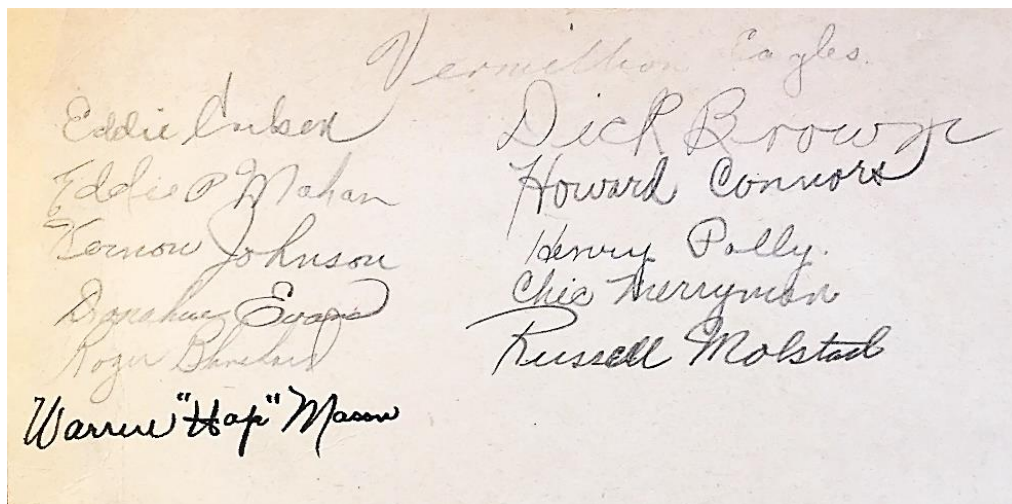 Vermillion Eagles.
Eddie
Eddie P Mahan
Vernon Johnson
Donahue Evans
Roger
Warren "Hap" Mason
Dick Brown
Howard Connors
Henry Polly.
Chic Merryman
Russell Molstad